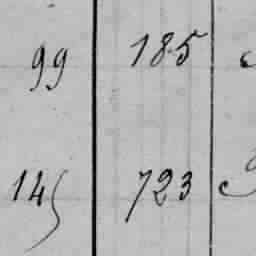 99 185
145 723